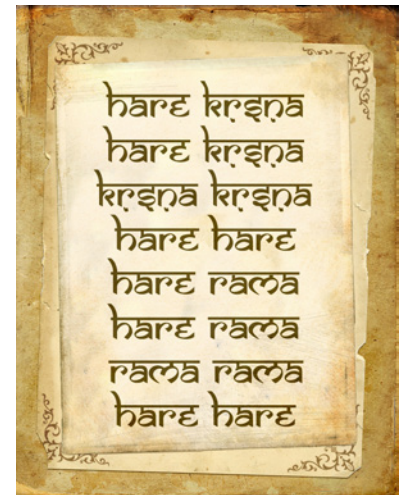 hare kṛṣṇa
hare kṛṣṇa
kṛṣṇa kṛṣṇa
hare hare
hare rama
hare rama
rama rama
hare hare